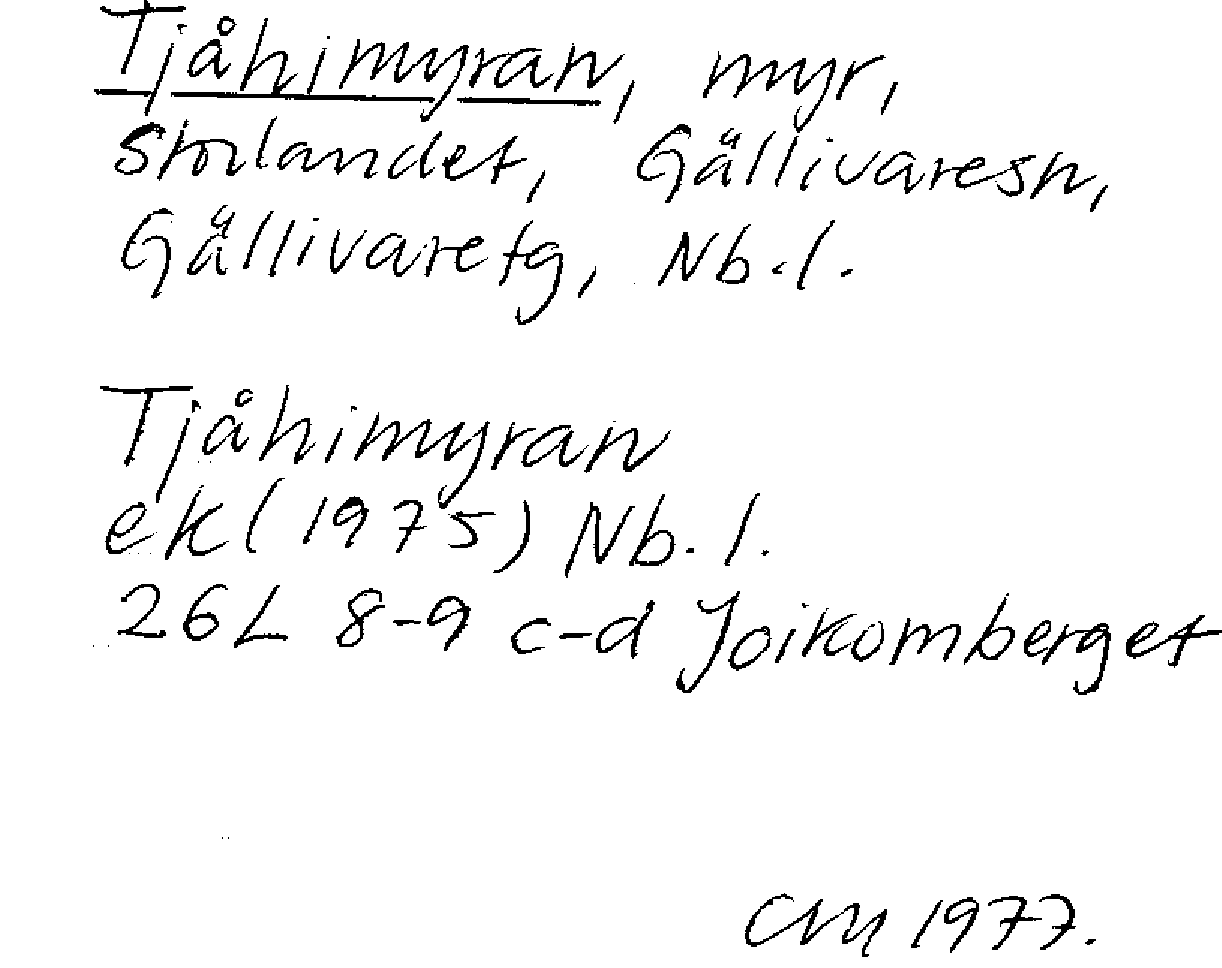 Tjåhimyran, myr,
Storlandet, Gällivaresn,
Gällivaretg, Nb.l.
Tjåhimyran
ek (1975) Nb.l.
26L 8-9 c-d Joikomberget
CM 1977.